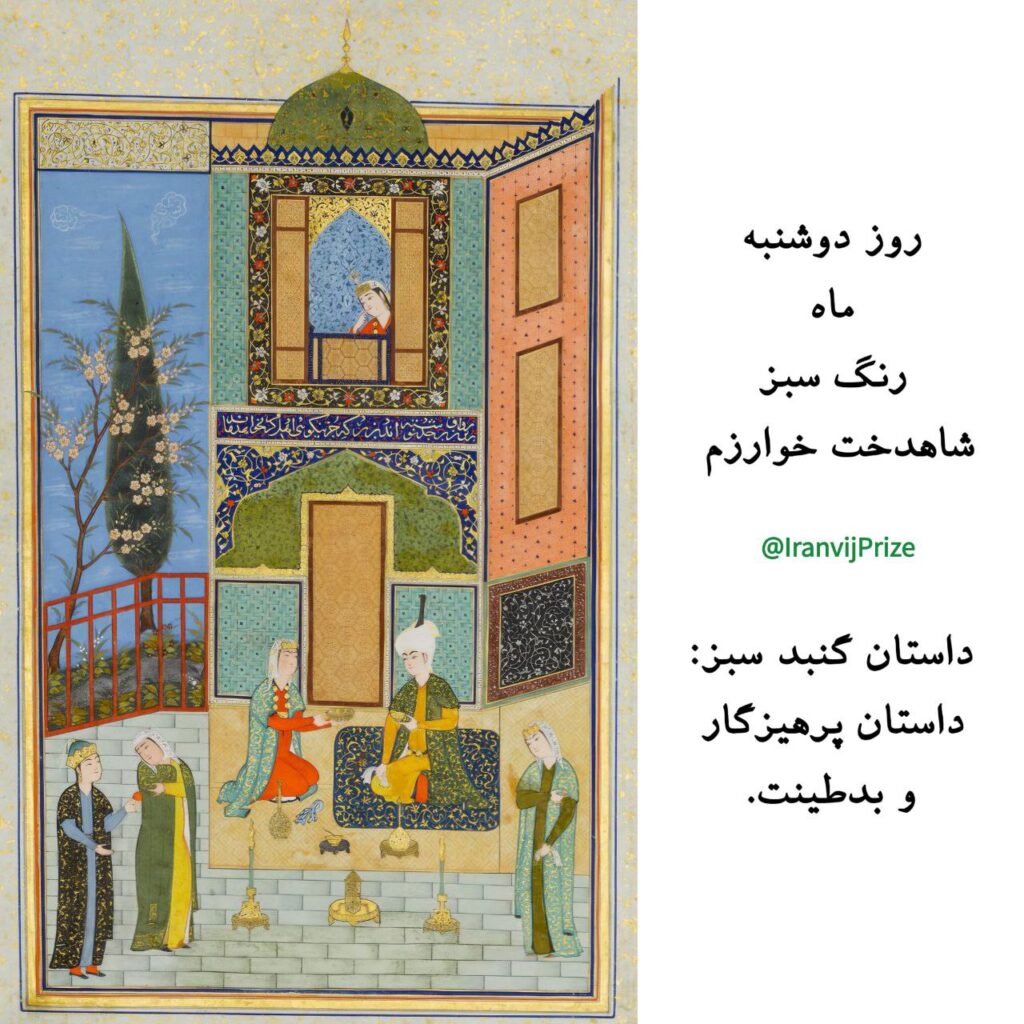 روز دوشنبه
ماه
رنگ سبز
شاهدخت خوارزم
@IranvijPrize
داستان گنبد سبز:
داستان پرهیزگار
و بدطینت.